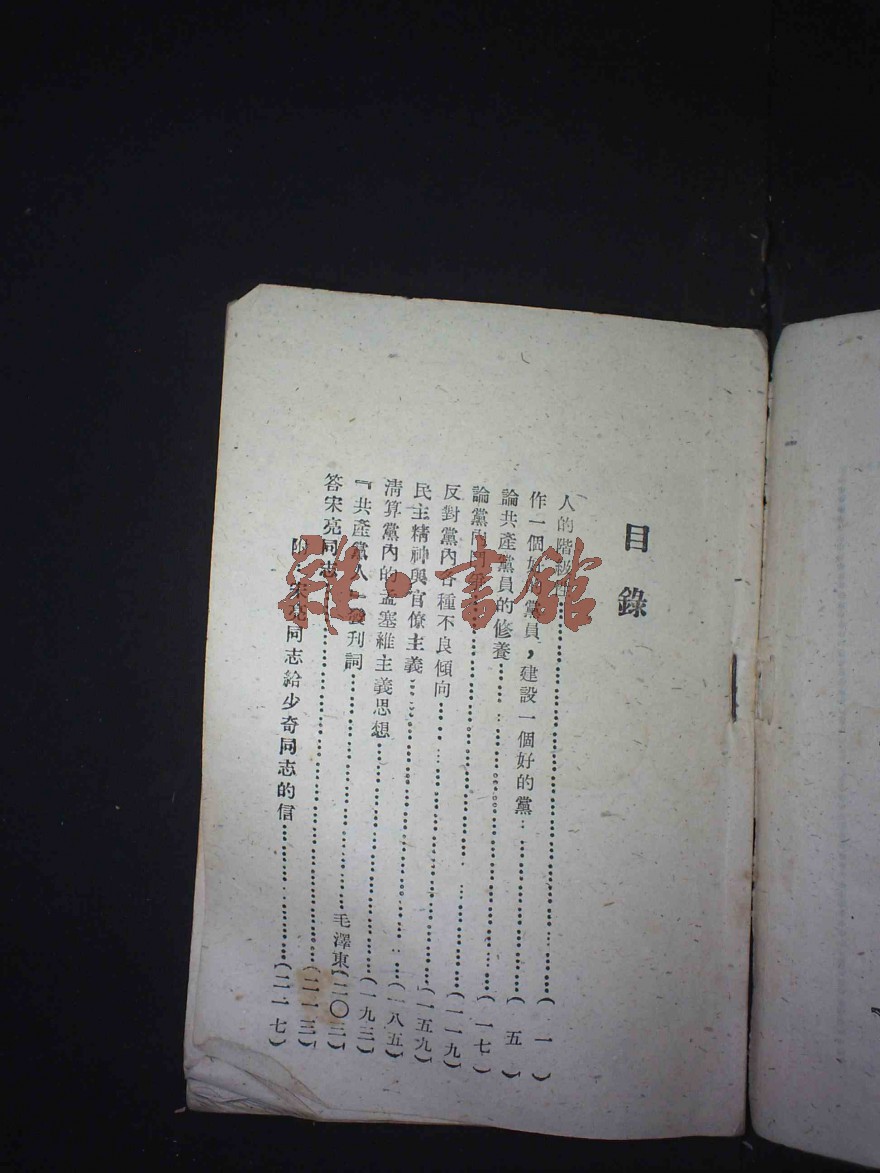 目錄
人的階級性……（一）
作一個好的黨員，建設一個好的黨……（五）
論共產黨員的修養……（一七）
論黨內鬥爭……（一一九）
反對黨內各種不良傾向……（一五九）
民主精神與官僚主義……（一八五）
清算黨內的孟塞維主義思想……（一九三）
『共產黨人』發刊詞……毛澤東（二〇三）
答宋亮同志……（二一三）
附：宋亮同志給少奇同志的信……（二一七）
雜·書館